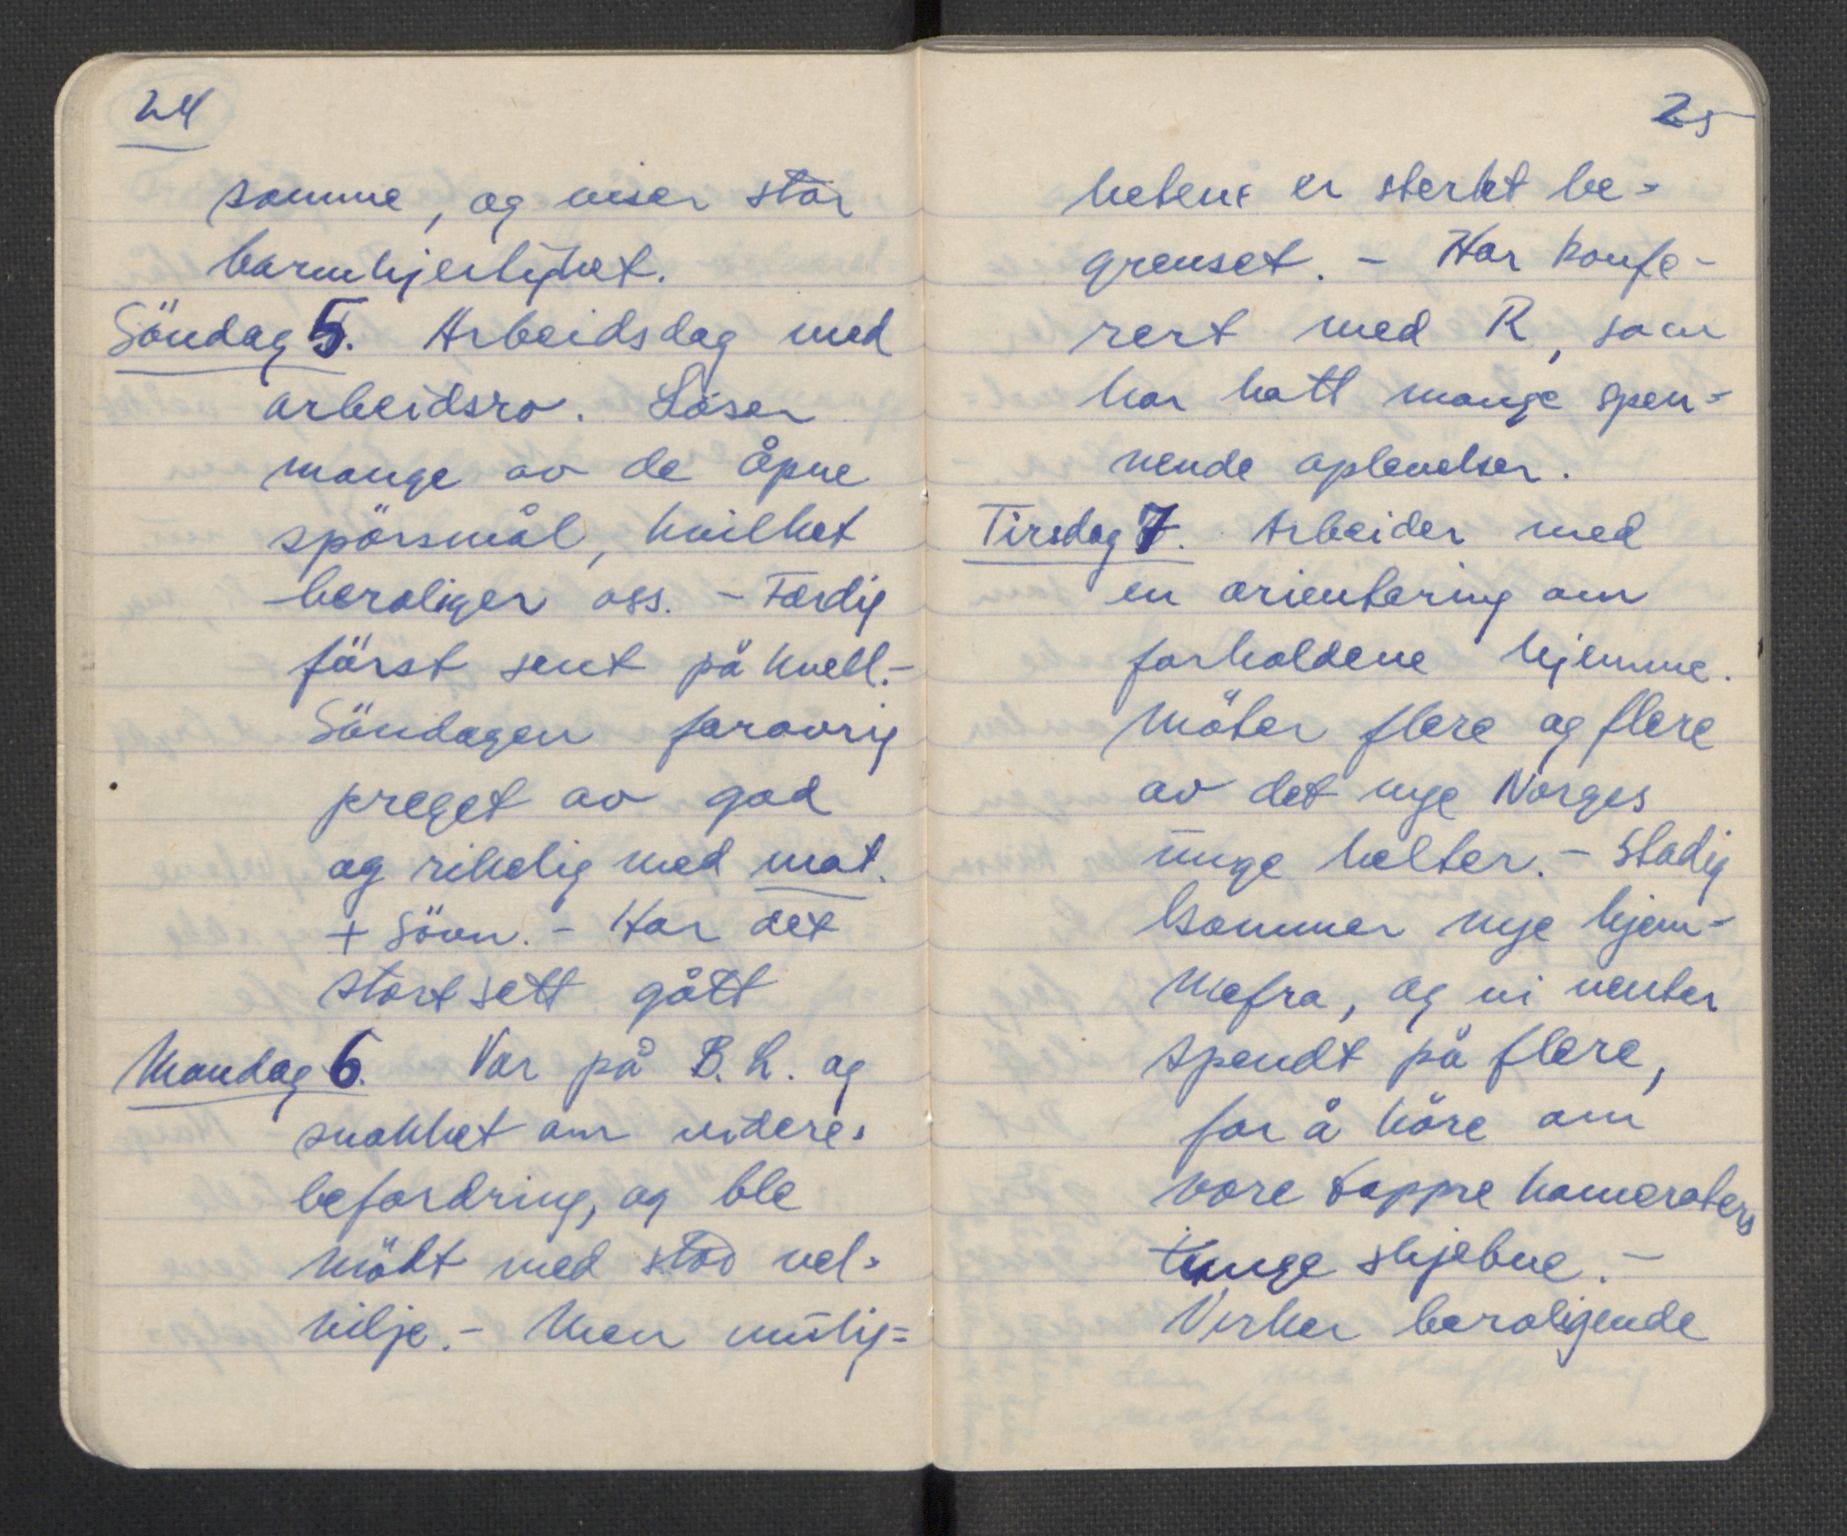 24
somme, og viser stor
barmhjertighet.
Söndag 5. Arbeidsdag med
arbeidsro. Löser
mange av de åpne
spörsmål, hvilket
beroliger oss. - Færdig
först sent på kvell.-
Söndagen forøvrig
preget av god
og rikelig med mat.
+ Sövn. - Har det
stort sett gått
Mandag 6. Var på B.L. og
snakket om videre-
befordring, og ble
mött med stor vel-
vilje. - Men mulig=
25
hetene er sterkt be-
grenset. - Har konfe-
rert med R, som
har hatt mange spen-
nende oplevelser.
Tirsdag 7. Arbeider med
en orientering om
forholdene hjemme.
Möter flere og flere
av det nye Norges
unge helter. - Stadig
kommer nye hjem-
mefra, og vi venter
spendt på flere,
for å höre om
vore tappre kameraters
tunge skjebne. -
Virker beroligende